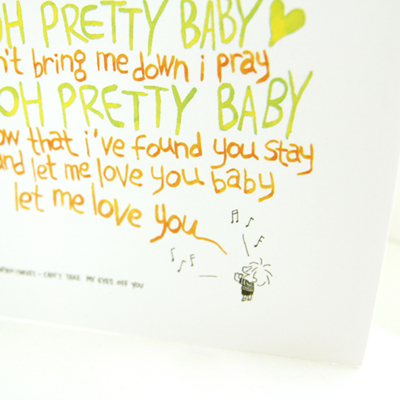 OH PRETTY BABY
n't bring me down i pray
OH PRETTY BABY
ow that i've found you stay
and let me love you baby
let me love you
- CAN'T TAKE MY EYES OFF YOU